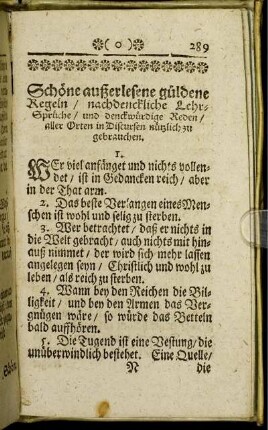 ( o ) 289
Schöne außerlesene güldene
Regeln / nachdenckliche Lehr-
Sprüche / und denckwürdige Reden /
aller Orten in Discursen nützlich zu
gebrauchen.
1.
WEr viel anfänget und nichts vollen-
det / ist in Gedancken reich / aber
in der That arm.
2. Das beste Verlangen eines Men-
schen ist wohl und selig zu sterben.
3. Wer betrachtet / daß er nichts in
die Welt gebracht / auch nichts mit hin-
auß nimmet / der wird sich mehr lassen
angelegen seyn / Christlich und wohl zu
leben / als reich zu sterben.
4. Wann bey den Reichen die Bil-
ligkeit / und bey den Armen das Ver-
gnügen wäre / so würde das Betteln
bald auffhören.
5. Die Tugend ist eine Vestung / die
unüberwindlich bestehet. Eine Quelle /
N die